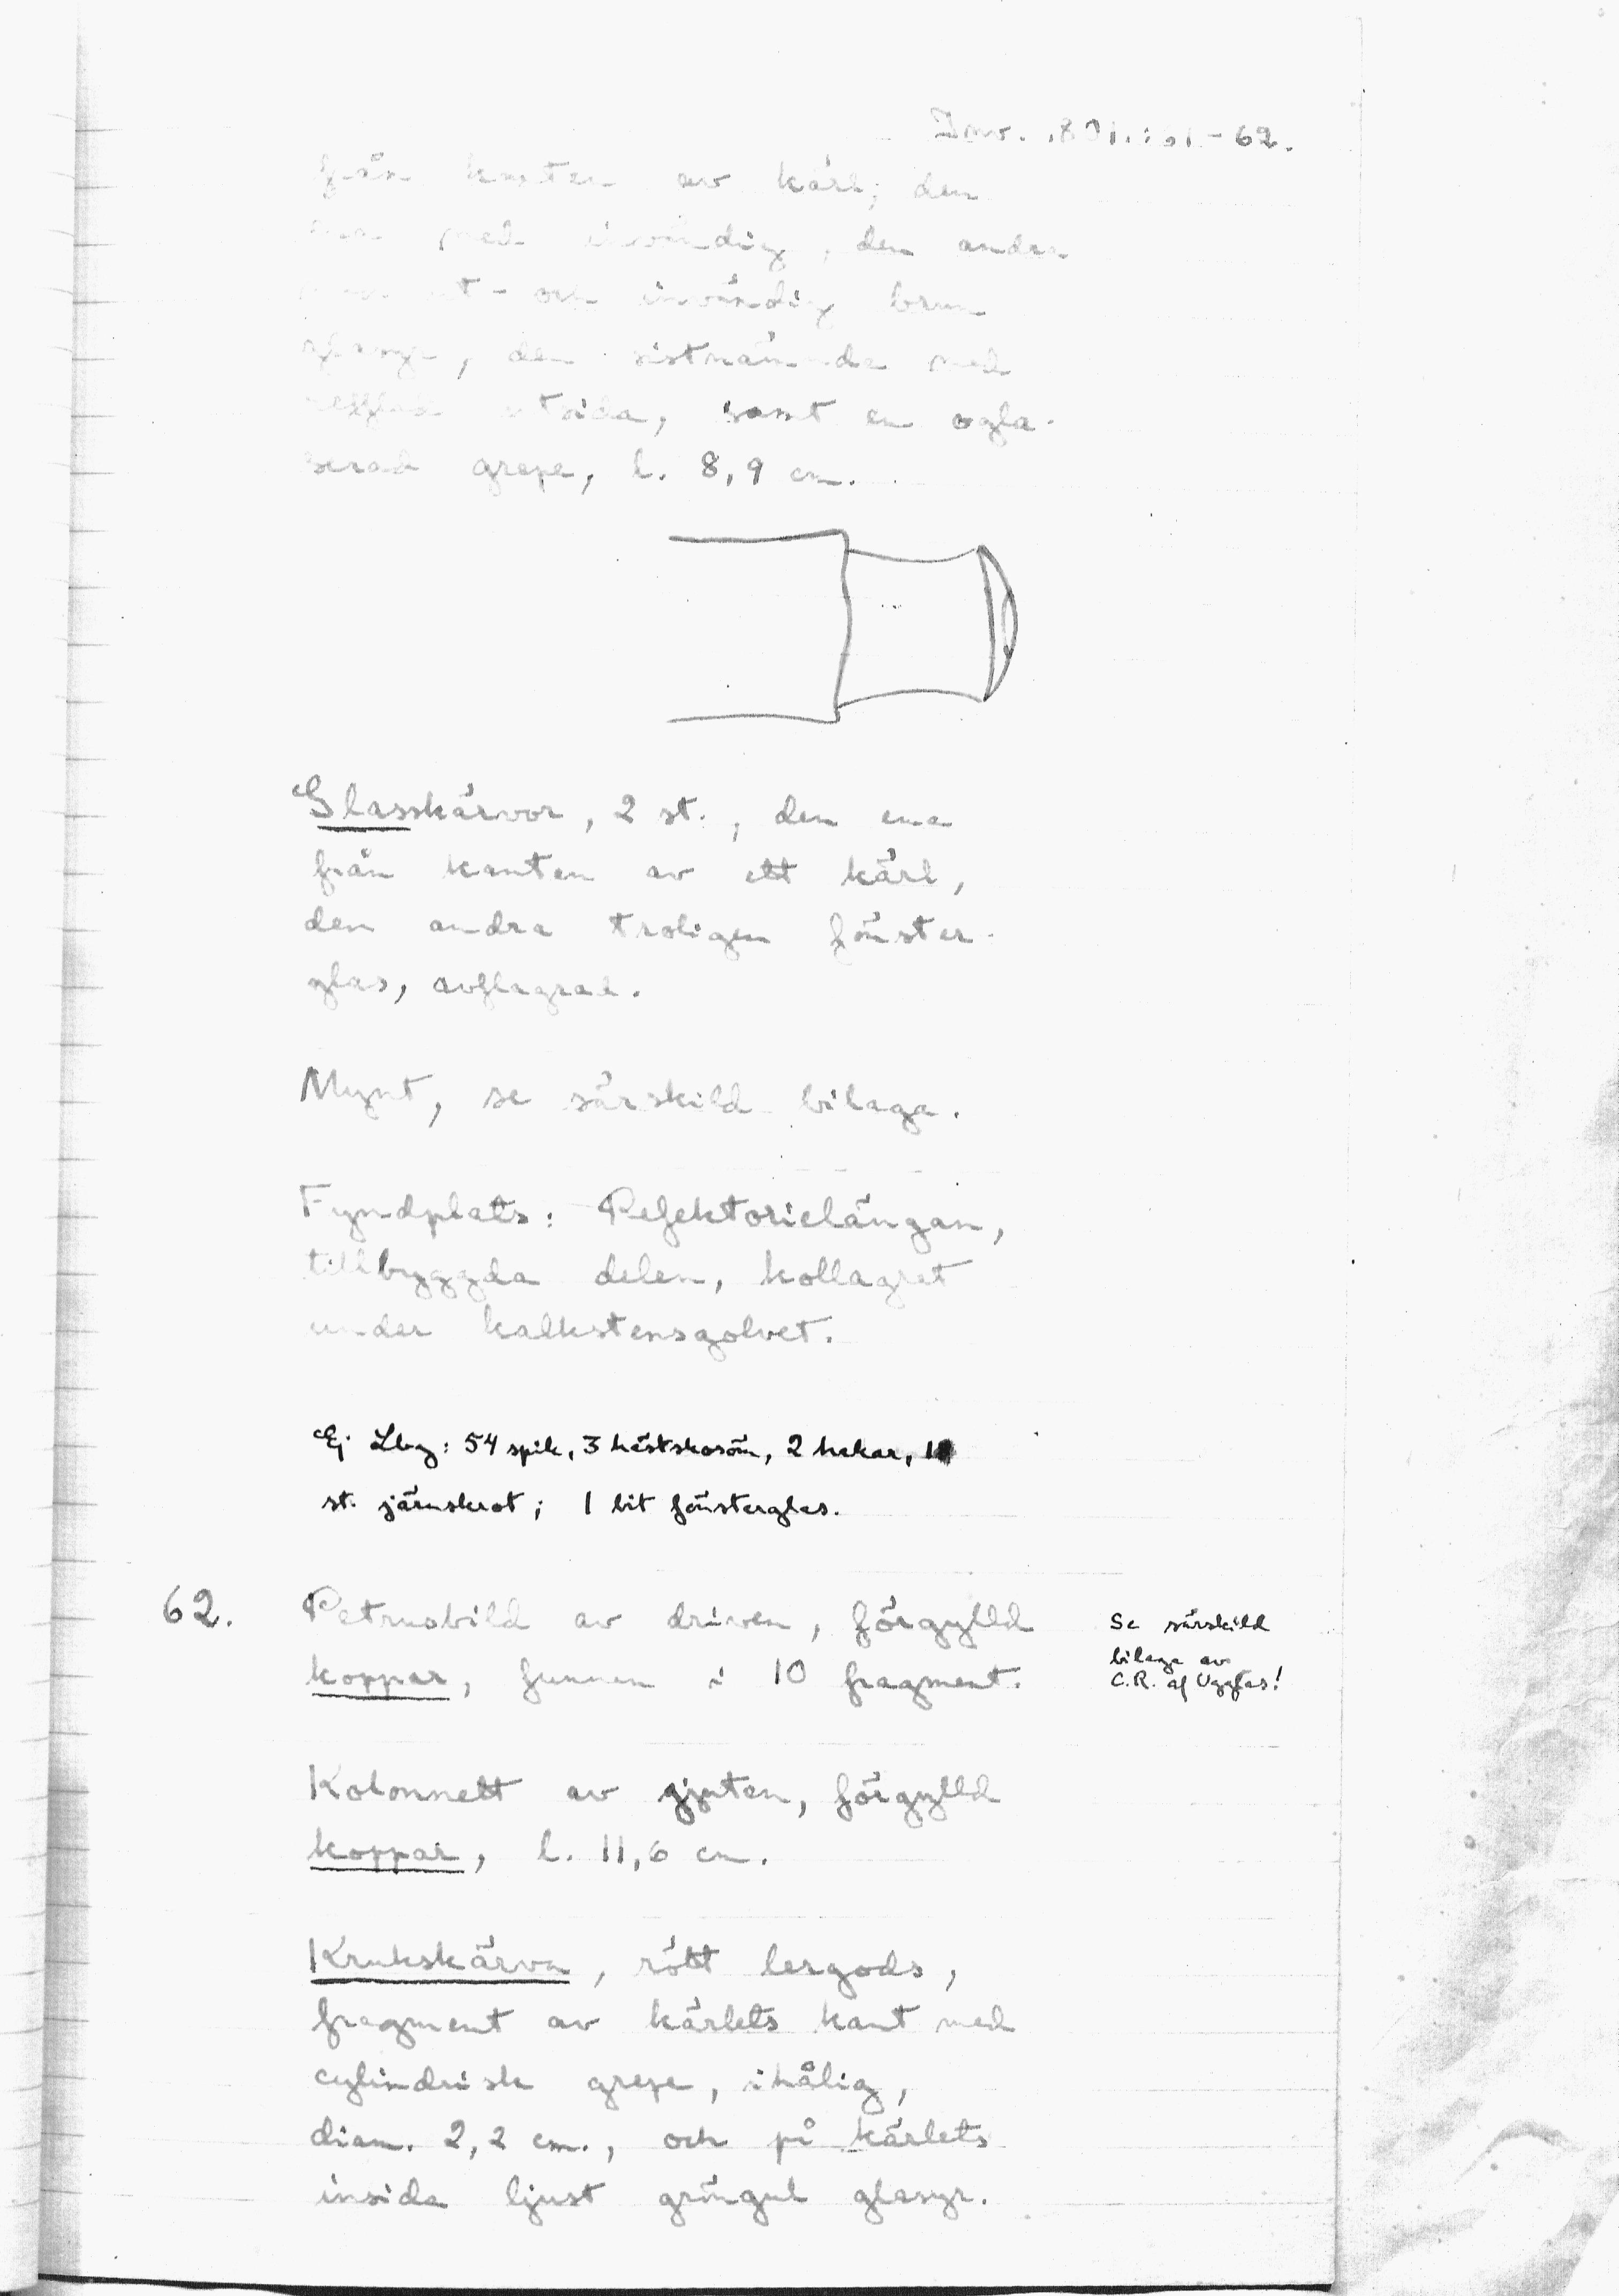 Inv. 801:61-62.
från kanten av kärl; den
ena med invändig, den andra
med ut- och invändig brun
glasyr, den sistnämnda med
refflad utsida, samt en ogla-
serad grepe, l. 8,9 cm.
Glasskärvor, 2 st., den ena
från kanten av ett kärl,
den andra troligen fönster-
glas, avflagrad.
Mynt, se särskild bilaga.
Fyndplats: Refektorielängan,
tillbyggda delen, kollagret
under kalkstensgolvet.
Ej Lbg: 54 spik, 3 hästskosöm, 2 hakar, 1
st. järnskrot; 1 bit fönsterglas.
62. Petrusbild av driven, förgylld
koppar, funnen i 10 fragment.
Se särskild
bilaga av
C.R. af Ugglas!
Kolonnett av gjuten, förgylld
koppar, l. 11,6 cm.
Krukskärva, rött lergods,
fragment av kärlets kant med
cylindrisk grepe, ihålig,
diam. 2,2 cm., och på kärlets
insida ljust gröngul glasyr.